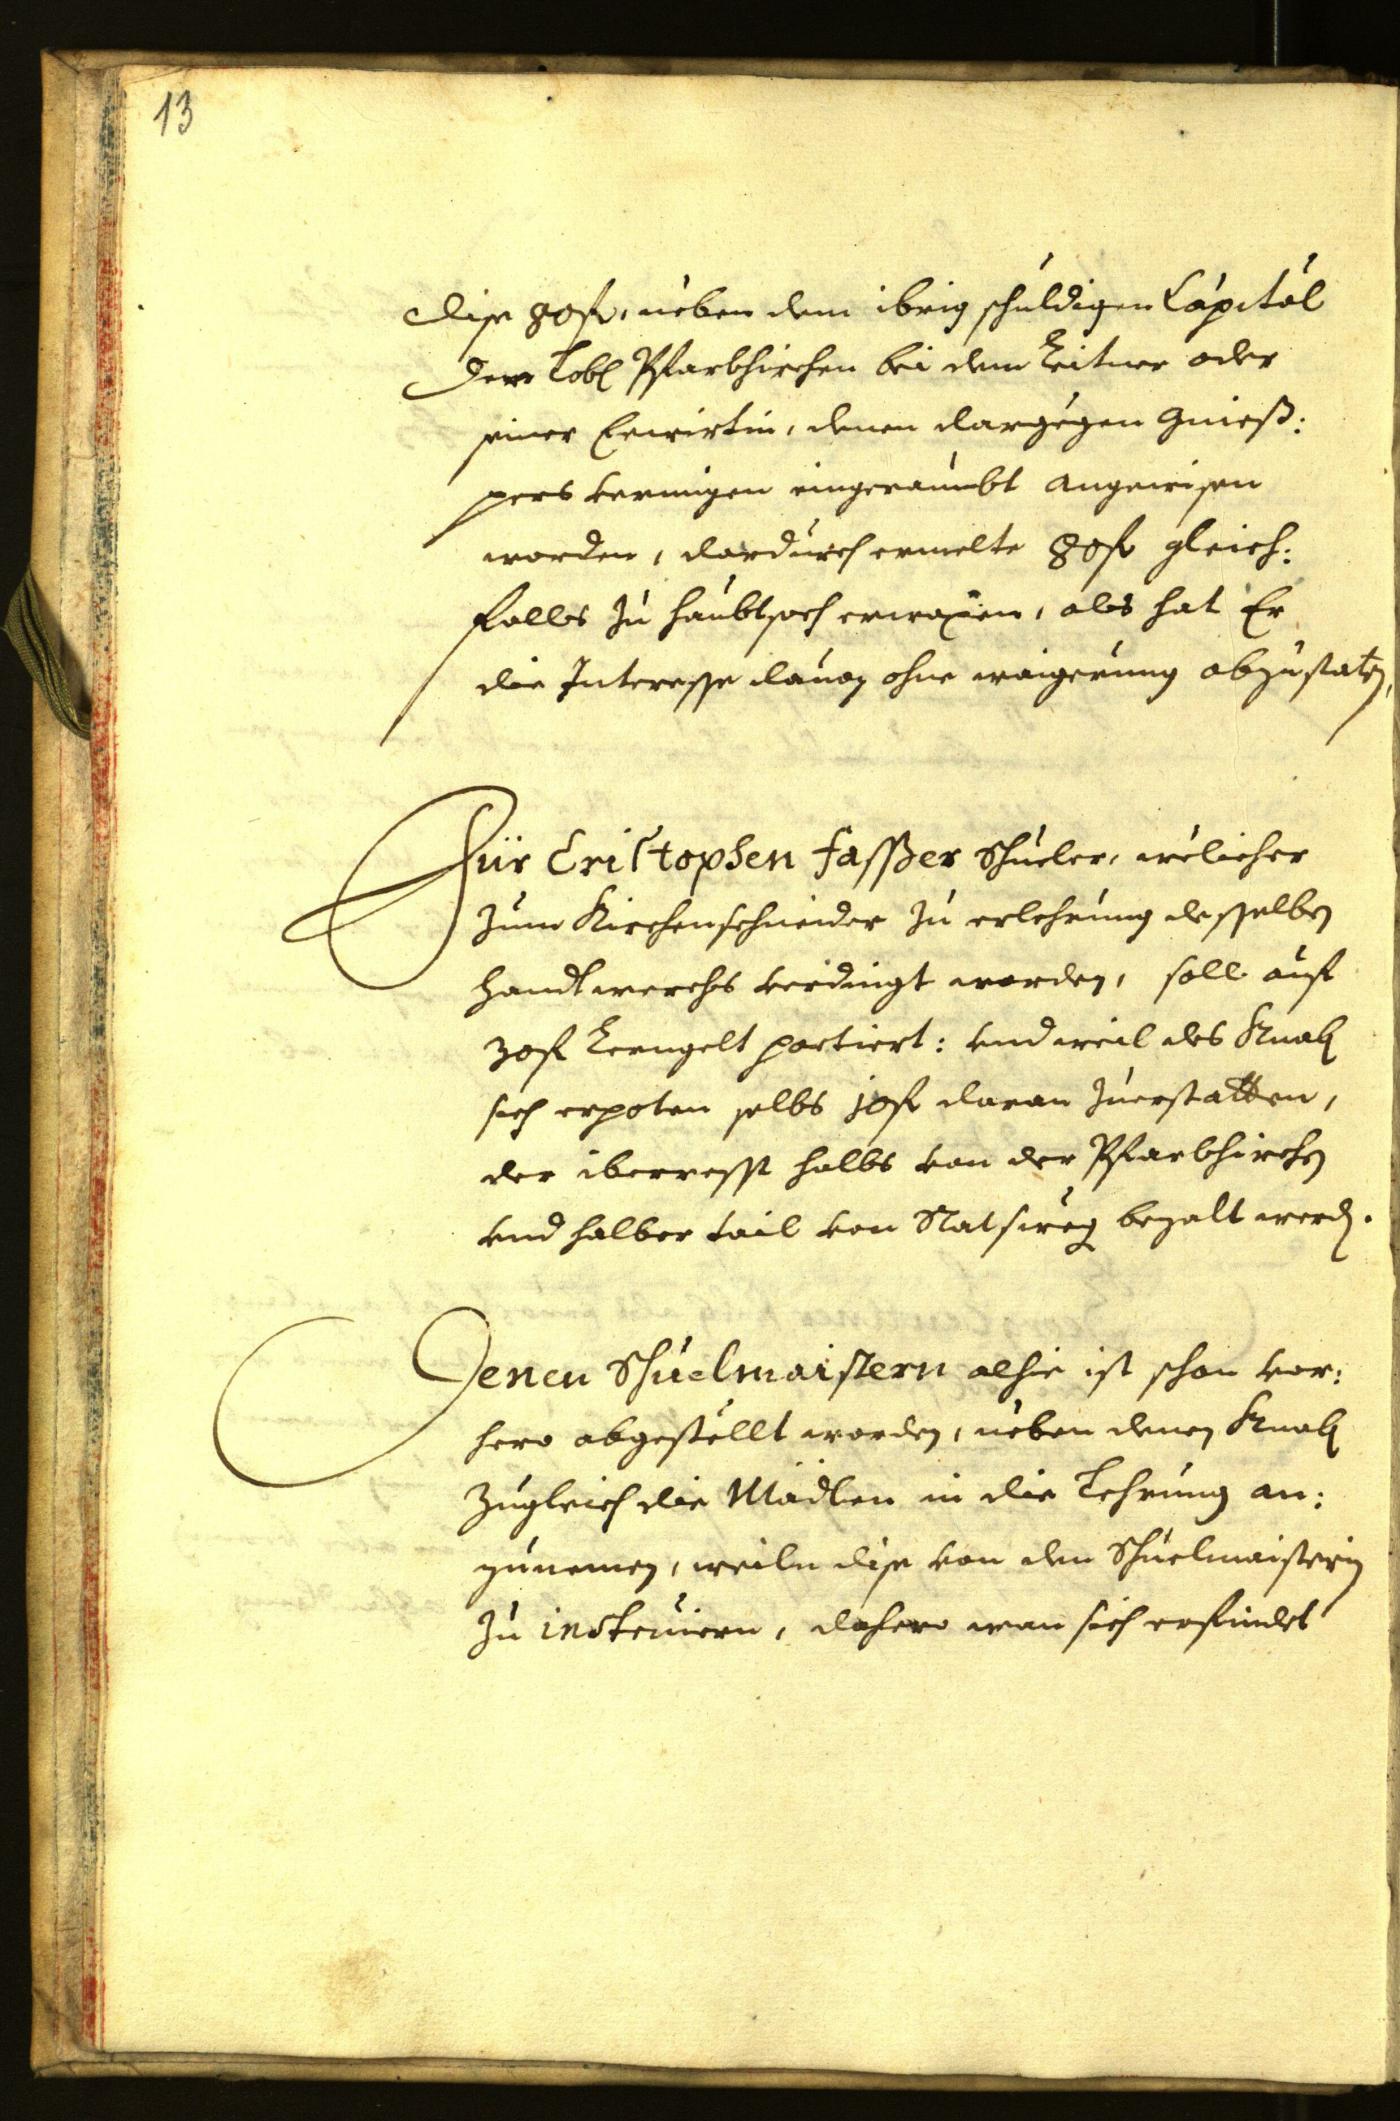 13
Dise 80 fl, neben dem ibrig schuldigen Capital
Der Lobl Pfarkhirchen bei dem Leitner oder
seiner Eewirtin, denen dargegen
vermigen eingeraumbt angewisen
worden, dardurch ermelte 80 fl gleich:
falls zu haubtsach erwaxen, als hat Er
die Interesse dauon ohne waigerung abzustaten,
Für Cristophen Fasser Schueler, welicher
zum Kirchenschneider zu erlehrung desselben
handtwerchs verdingt worden, soll auf
30 fl Lerngelt pactiert: vnd weil des Knaben
sich erpoten selbs 10 fl daran zuerstatten,
der iberresst halbs von der Pfarkhirchen
vnd halber tail von Ratsweg bezalt werden.
Denen Schuelmaistern alhie ist schon vor:
hero abgestellt worden, neben denen Knaben
zugleich die Mädlen in die Lehrung an:
zunemen, weiln dise von den Schuelmaisterin
zu instruiern, dahero man sich erfindet